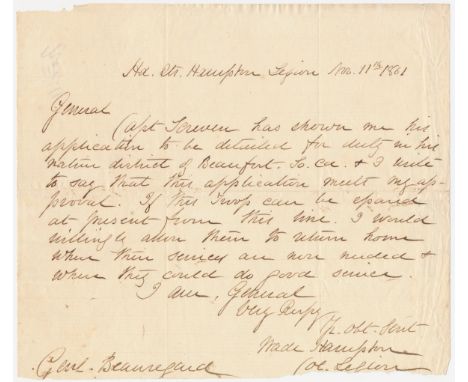 Hd. Qtr. Hampton Legion Nov. 11th 1861
General
Capt Screven has shown me his
application to be detailed for duty in his
native district of Beaufort. So. Ca. & I write
to say that this application meets my ap-
proval. If this Troop can be spared
at present from this line. I would
willingly allow them to return home
where their services are now needed &
where they could do good service.
I am, General
Very Respy
Yr. Obt. Svt
Wade Hampton
Col. Legion
Genl. Beauregard